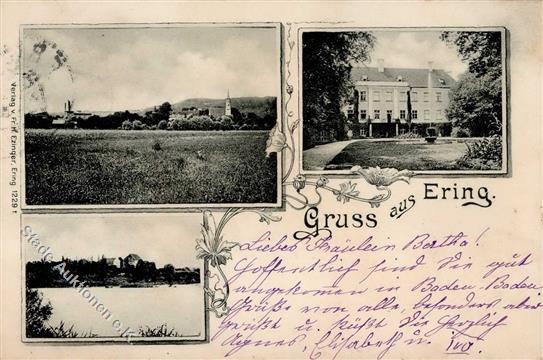 Verlag v. Franz Etzinger, Ering. 1229 f
Gruss aus Ering.
Liebes Fräulein Bertha!
Hoffentlich sind Sie gut
angekommen in Baden-Baden
Grüße von alle, besonders aber
grüßt u. küßt Sie herzlich
Agnes, Elisabeth u. Ivo
Stade Auktionen e.K.